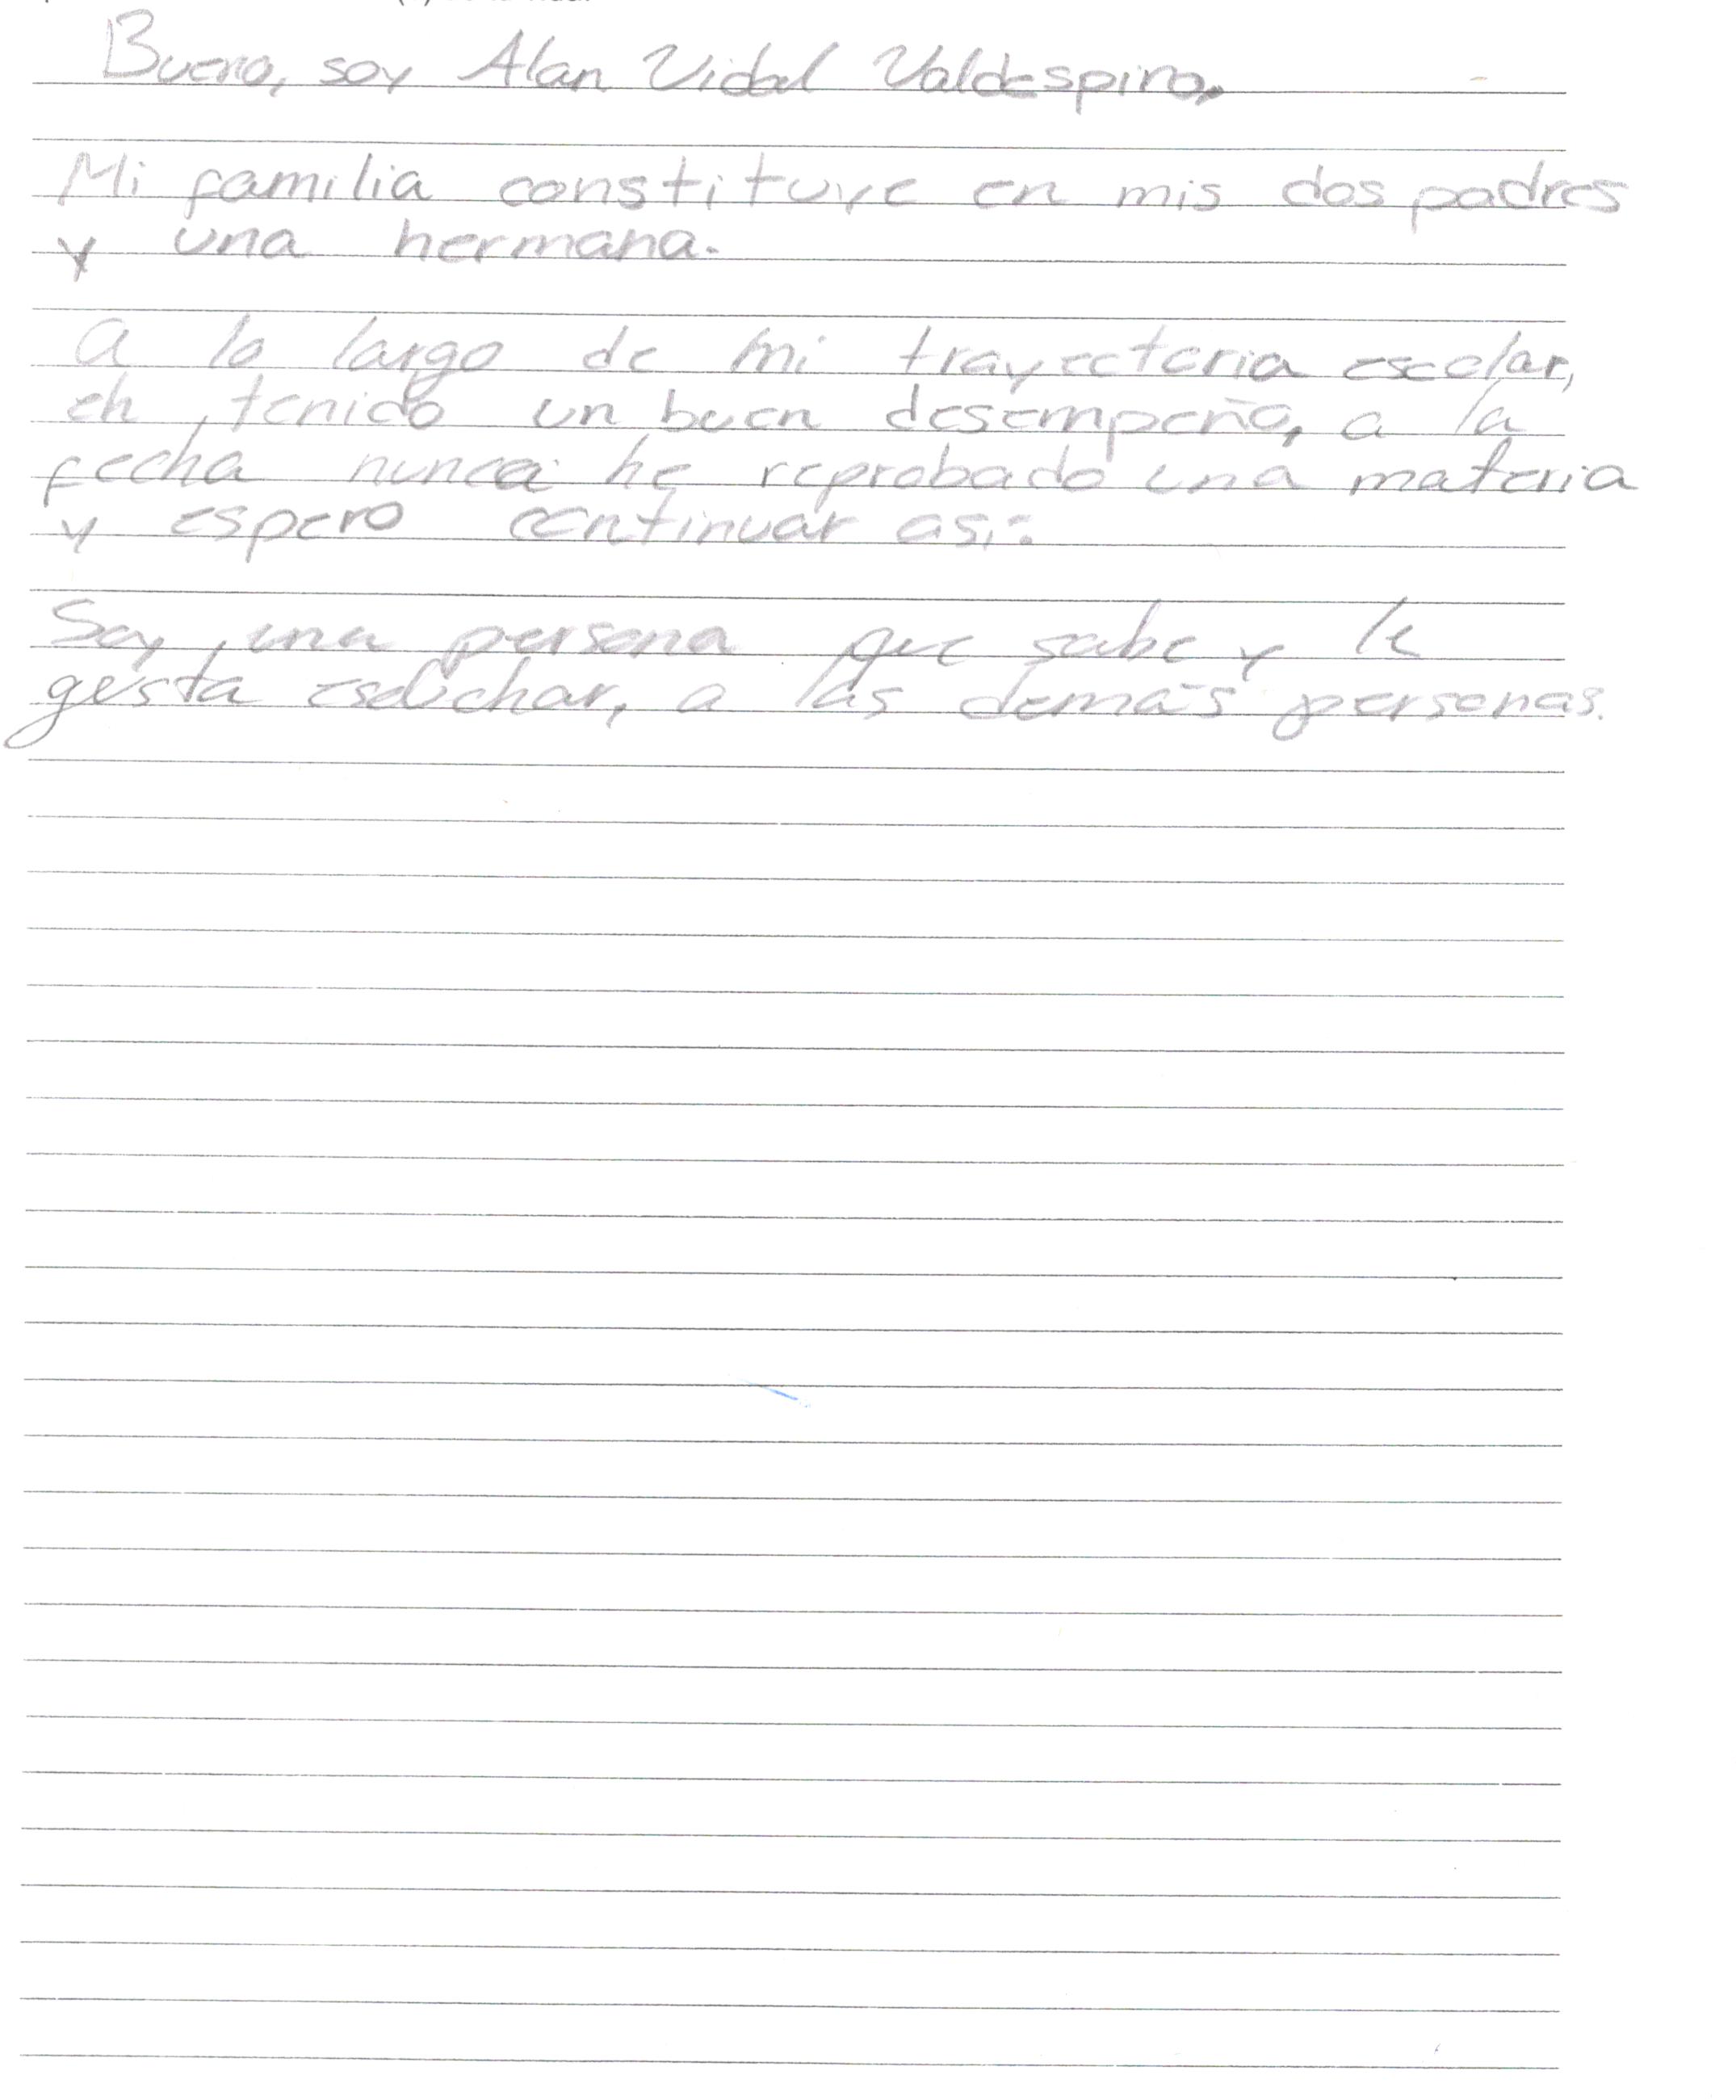 Bueno, soy Alan Vidal Valdespino.
Mi familia constituye en mis dos padres
y una hermana.
A lo largo de mi trayectoria escolar,
eh tenido un buen desempeño, a la
fecha nunca he reprobado una materia
y espero continuar así.
Soy una persona que sabe y le
gusta escuchar, a las demás personas.